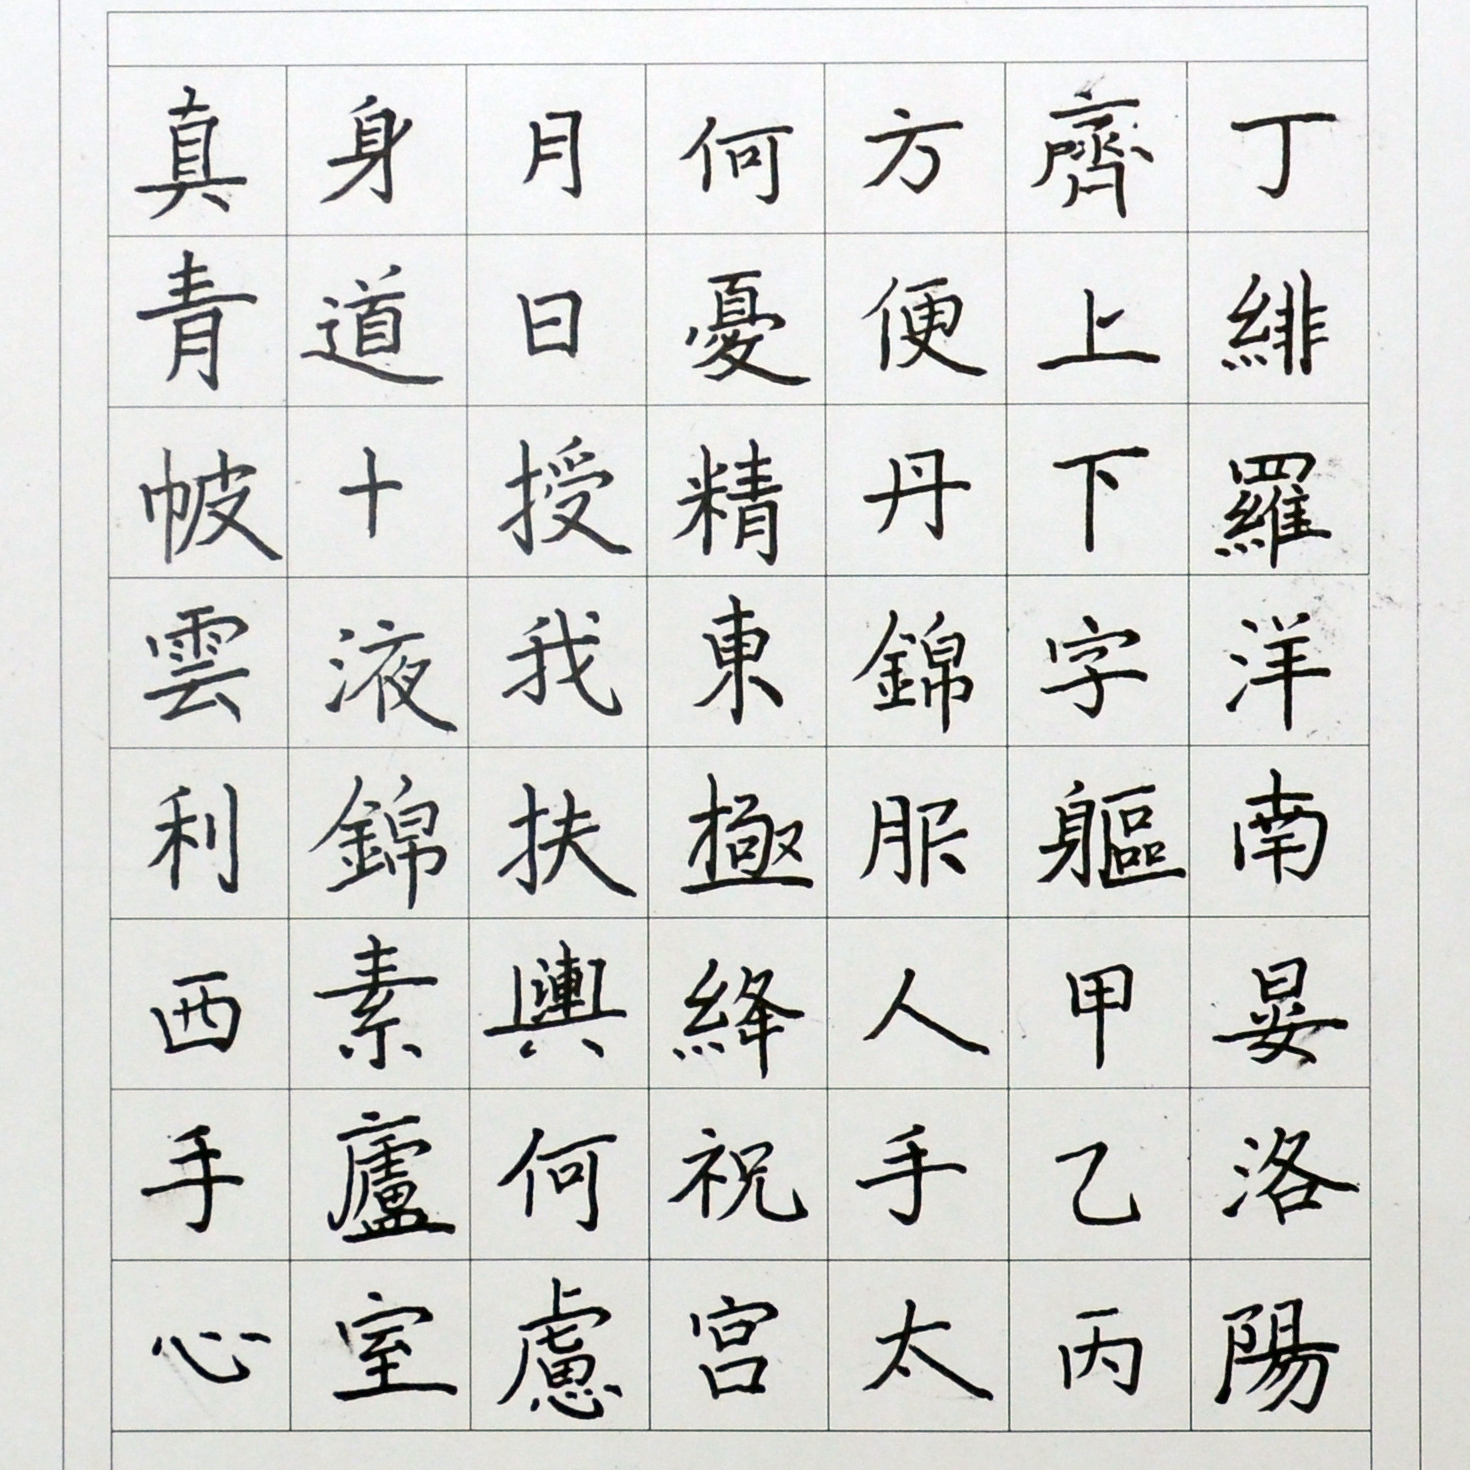 丁緋羅洋南晏洛陽
齊上下字軀甲乙丙
方便丹錦服人手太
何憂精東極絳祝宮
月日授我扶輿何慮
身道十液錦素廬室
真青帔雲利西手心